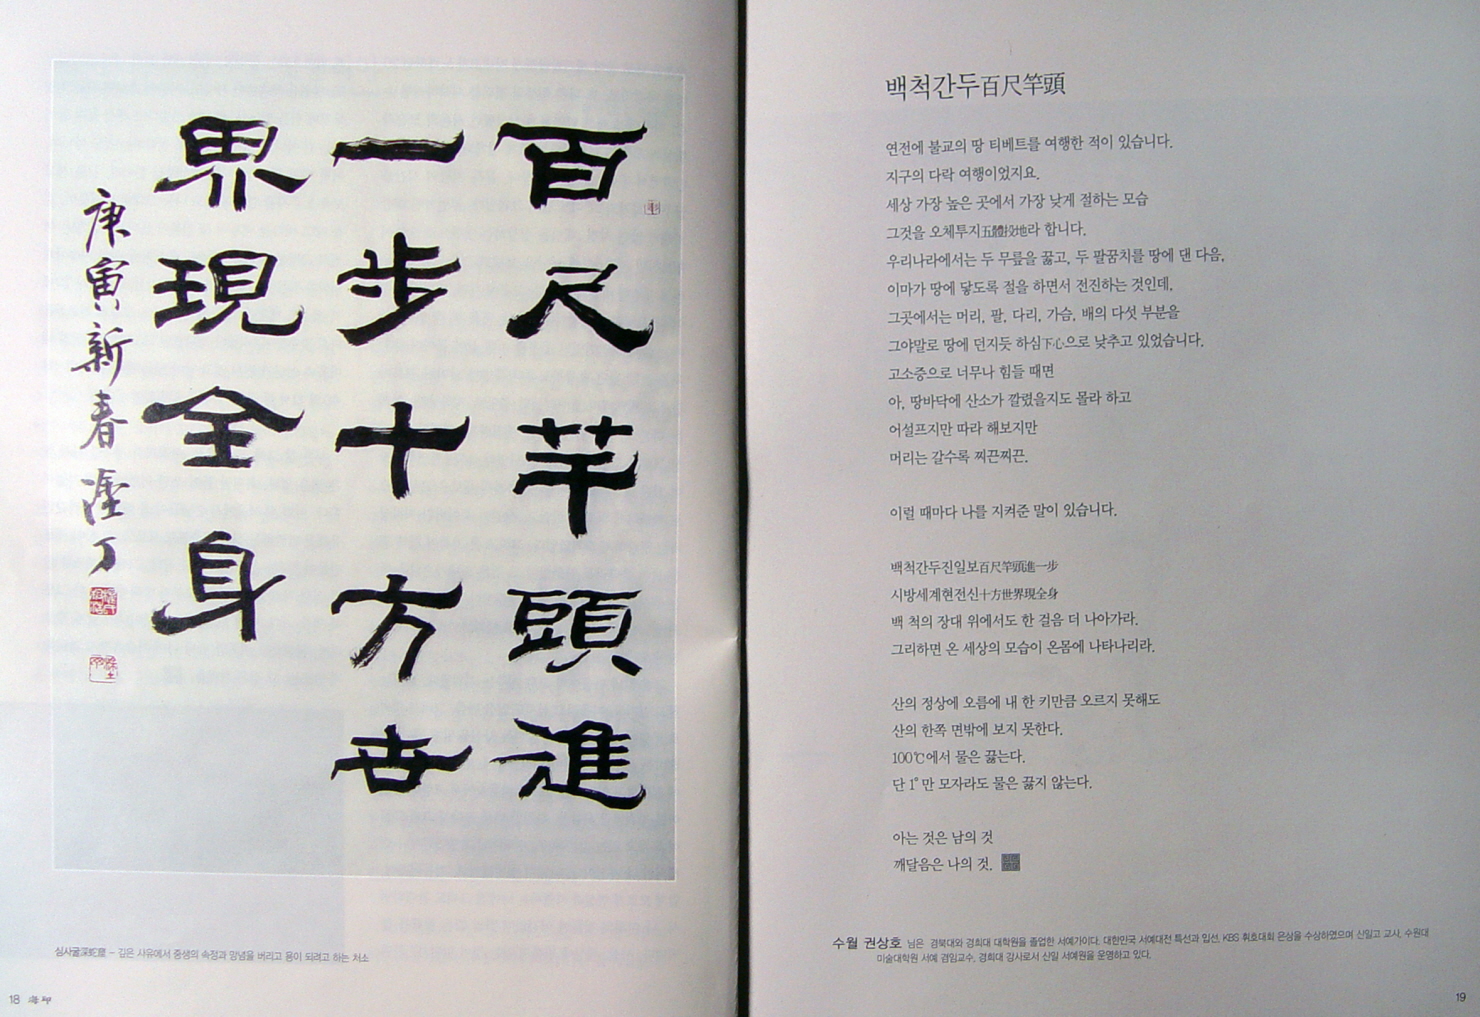 百尺竿頭進
一步十方世
界現全身
庚寅新春
심사굴深蛇窟 – 깊은 사유에서 중생의 속정과 망념을 버리고 용이 되려고 하는 처소
18 海印
백척간두百尺竿頭
연전에 불교의 땅 티베트를 여행한 적이 있습니다.
지구의 다락 여행이었지요.
세상 가장 높은 곳에서 가장 낮게 절하는 모습
그것을 오체투지五體投地라 합니다.
우리나라에서는 두 무릎을 꿇고, 두 팔꿈치를 땅에 댄 다음,
이마가 땅에 닿도록 절을 하면서 전진하는 것인데,
그곳에서는 머리, 팔, 다리, 가슴, 배의 다섯 부분을
그야말로 땅에 던지듯 하심下心으로 낮추고 있었습니다.
고소증으로 너무나 힘들 때면
아, 땅바닥에 산소가 깔렸을지도 몰라 하고
어설프지만 따라 해보지만
머리는 갈수록 찌끈찌끈.
이럴 때마다 나를 지켜준 말이 있습니다.
백척간두진일보百尺竿頭進一步
시방세계현전신十方世界現全身
백 척의 장대 위에서도 한 걸음 더 나아가라.
그리하면 온 세상의 모습이 온몸에 나타나리라.
산의 정상에 오름에 내 한 키만큼 오르지 못해도
산의 한쪽 면밖에 보지 못한다.
100℃에서 물은 끓는다.
단 1°만 모자라도 물은 끓지 않는다.
아는 것은 남의 것
깨달음은 나의 것.
수월 권상호 님은 경북대와 경희대 대학원을 졸업한 서예가이다. 대한민국 서예대전 특선과 입선, KBS 휘호대회 은상을 수상하였으며 신일고 교사, 수원대
미술대학원 서예 겸임교수, 경희대 강사로서 신일 서예원을 운영하고 있다.
19